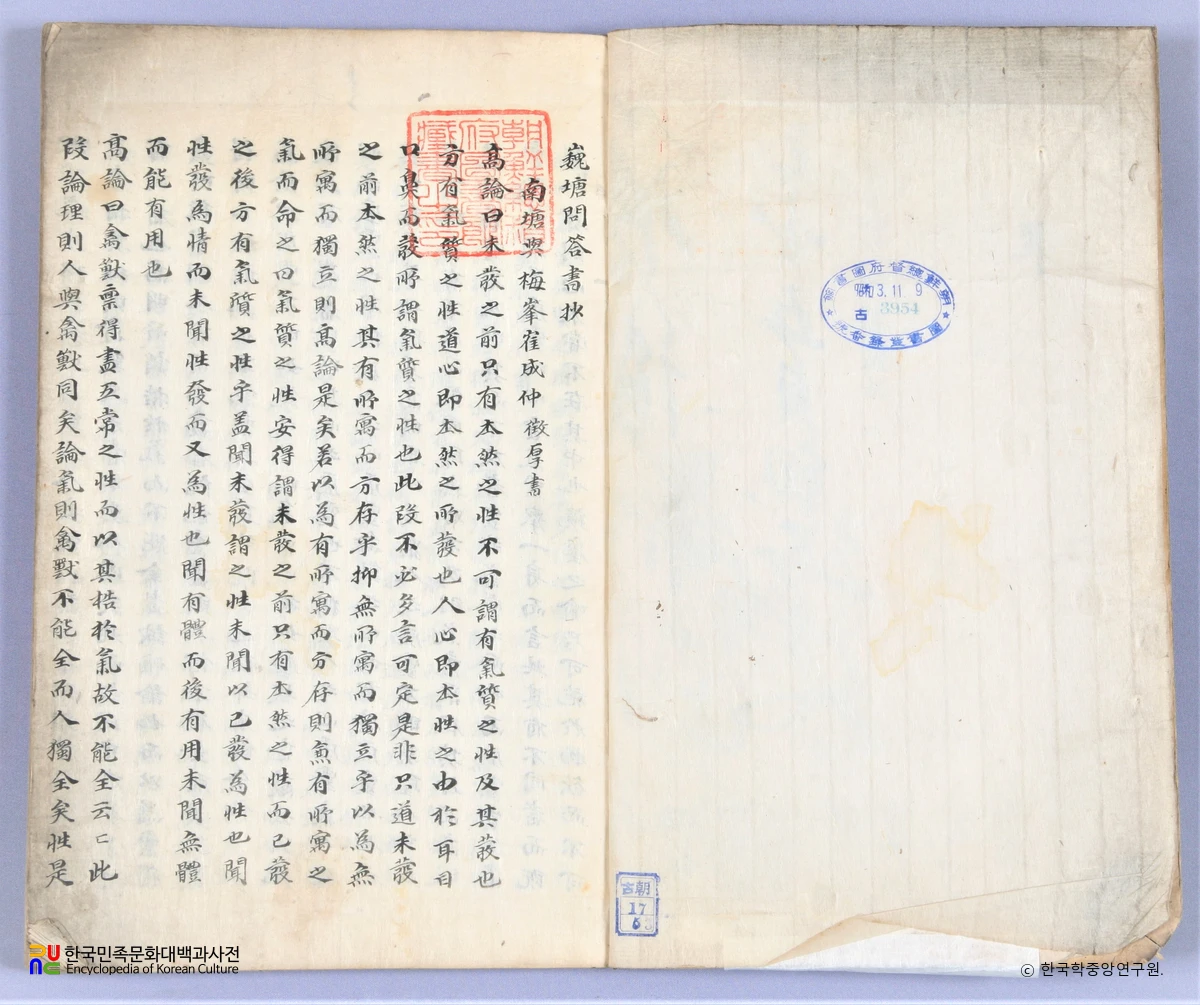 巍塘問答書抄
南塘與梅峯崔成仲徵厚書
高論曰未發之前只有本然之性不可謂有氣質之性及其發也
方有氣質之性道心即本然之所發也人心即本性之由於耳目
口鼻而發所謂氣質之性也此段不必多言可定是非只道未發
之前本然之性其有所寓而方存乎抑無所寓而獨立乎以為無
所寓而獨立則高論是矣若以為有所寓而方存則魚有所寓之
氣而命之曰氣質之性安得謂未發之前只有本然之性而已發
之後方有氣質之性乎盖聞未發謂之性未聞以已發為性也聞
性發為情而未聞性發而又為性也聞有體而後有用未聞無體
而能有用也
高論曰禽獸禀得盡五常之性而以其梏於氣故不能全云〻此
段論理則人與禽獸同矣論氣則禽獸不能全而人獨全矣性是
朝鮮總督府圖書館
昭和3.11 9
古 3954
圖書登錄番號
古朝
17
6
한국민족문화대백과사전
Encyclopedia of Korean Culture
© 한국학중앙연구원.